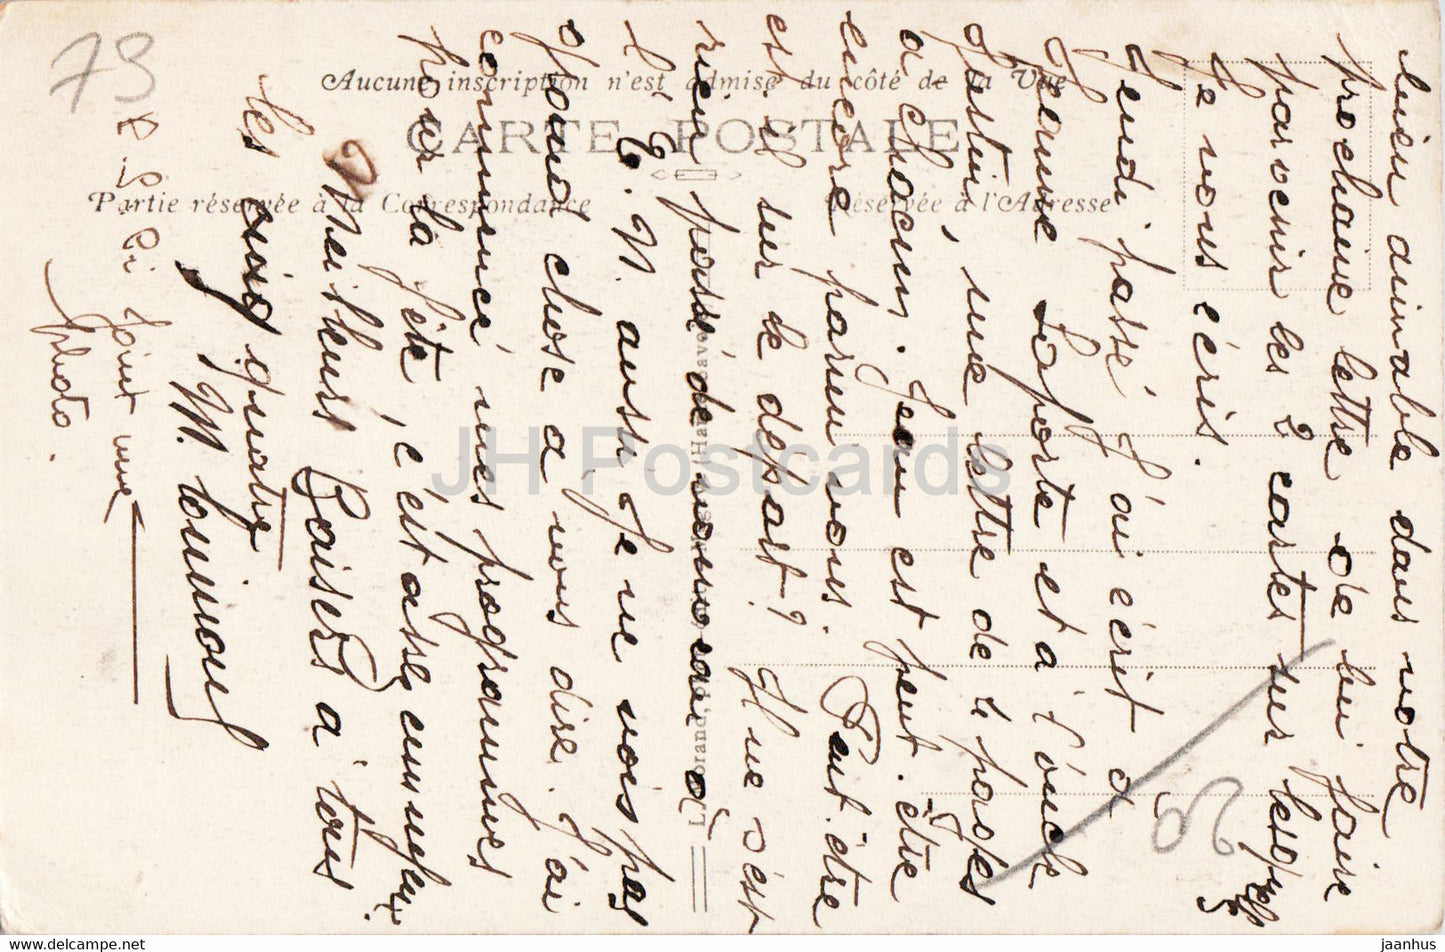 Aucune inscription n'est admise du côté de la Vue
CARTE POSTALE
Partie réservée à la Correspondance
Réservée à l'Adresse
bien aimable dans votre
prochaine lettre de lui faire
parvenir les 2 cartes sur
Je vous écris.
Jeudi passé j'ai écrit à
Jeanne Laporte et à l'oncle
Justin, une lettre de 4 pages
à chacun. Jean est peut-être
encore parmi vous. Peut-être
est-il sur le départ? Il ne s'est
rien passé de nouveau à
l'E. N. aussi je ne vois pas
grand chose à vous dire. J'ai
commencé mes programmes
pour la fête, c'est assez ennuyeux.
Meilleurs Baisers à tous
les cinq quatre
M.
P. S. Ci joint une
photo.
79
20
JH Postcards
jaanhus